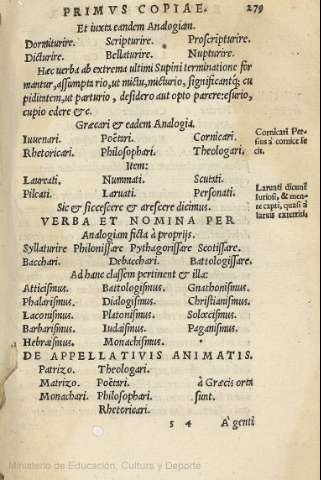 PRIMVS COPIAE. 279
Et iuxta eandem Analogian.
Dormiturire. Scripturire. Proscripturire.
Dicturire. Bellaturire. Nupturire.
Hæc uerba ab extrema ultimi Supini terminatione for
mantur, assumpta rio, ut mictu, micturio, significantq; cu
piditatem, ut parturio, desidero aut opto parere: esurio,
cupio edere &c.
Græcari & eadem Analogia.
Iuuenari. Poëtari. Cornicari.
Rhetoricari. Philosophari. Theologari.
Cornicari Per
sius à cornice fe
cit.
Item:
Laureati. Nummati. Scutati.
Pileati. Laruati. Personati.
Laruati dicunt
furiosi, & men
te capti, quasi à
laruis exterriti.
Sic & siccescere & arescere dicimus.
VERBA ET NOMINA PER
Analogiam ficta à proprijs.
Syllaturire Philonissare Pythagorissare Scotissare.
Bacchari. Debacchari. Battologissare.
Ad hanc classem pertinent & illa:
Atticismus. Battologismus. Gnathonismus.
Phalarismus. Dialogismus. Christianismus.
Laconismus. Platonismus. Solœcismus.
Barbarismus. Iudaismus. Paganismus.
Hebraismus. Monachismus.
DE APPELLATIVIS ANIMATIS.
Patrizo. Theologari.
Matrizo. Poëtari. à Græcis orta
Monachari. Philosophari. sunt.
Rhetoricari.
s 4 A' genti
Ministerio de Educación, Cultura y Deporte